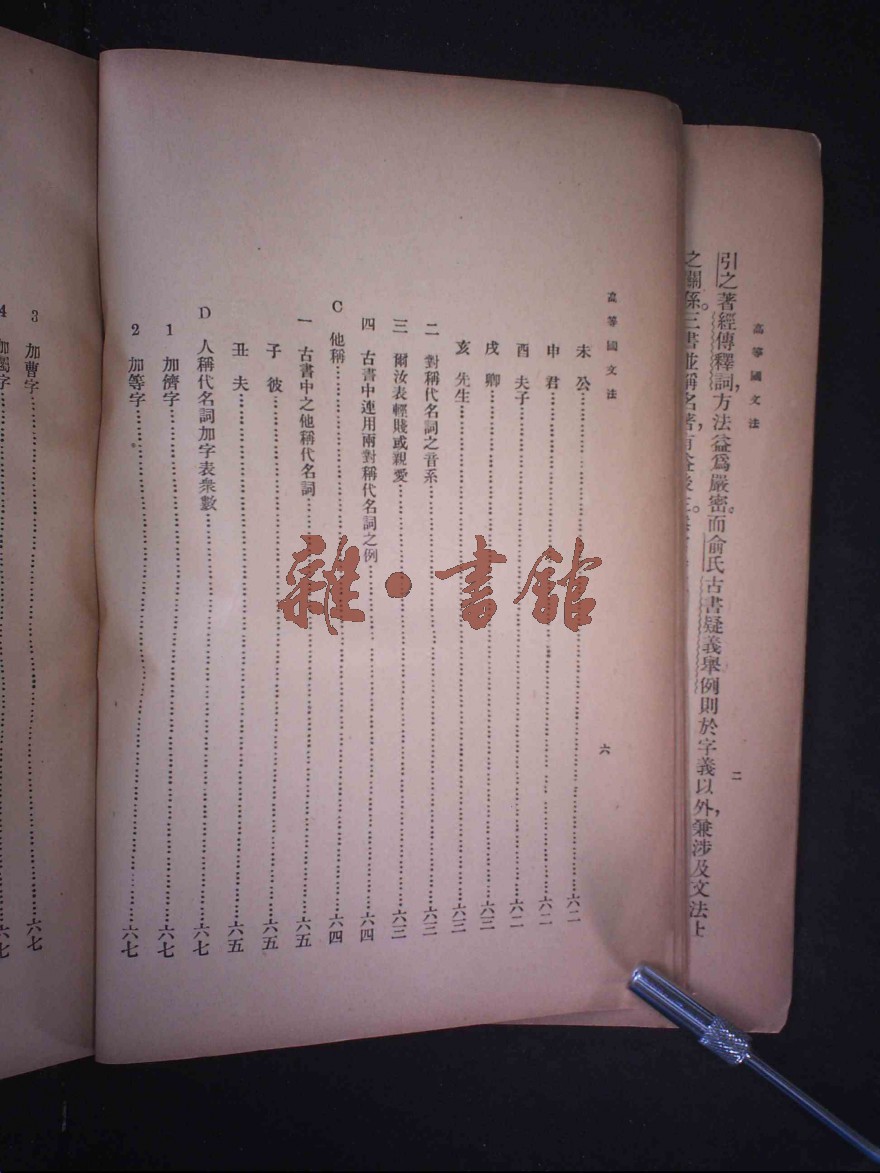 高等國文法
二
引之著經傳釋詞，方法益爲嚴密。而俞氏古書疑義舉例則於字義以外，兼涉及文法上
之關係。三書並稱名著，
高等國文法
六
未 公……六二
申 君……六二
酉 夫子……六二
戌 卿……六三
亥 先生……六三
二 對稱代名詞之音系……六三
三 爾汝表輕賤或親愛……六三
四 古書中連用兩對稱代名詞之例……六四
C 他稱……六四
一 古書中之他稱代名詞……六五
子 彼……六五
丑 夫……六五
D 人稱代名詞加字表衆數……六七
1 加儕字……六七
2 加等字……六七
3 加曹字……六七
4 加屬字……六七
雜·書館